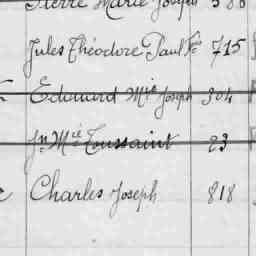 Pierre Marie Joseph 580
Jules Théodore Paul Fs 715
Edouard Mie Joseph 304
Jn Mie Toussaint 23
Charles Joseph 818